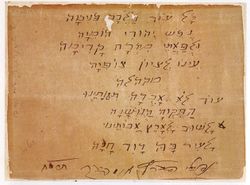 כל עוד בלבב פנימה
נפש יהודי הומיה
ולפאתי מזרח קדימה
לציון צופיה
מקהלה
עוד לא אבדה תקותנו
התקוה הנושנה
לשוב לארץ אבותינו
לעיר בה דוד חנה
נפתלי הרץ אימבר